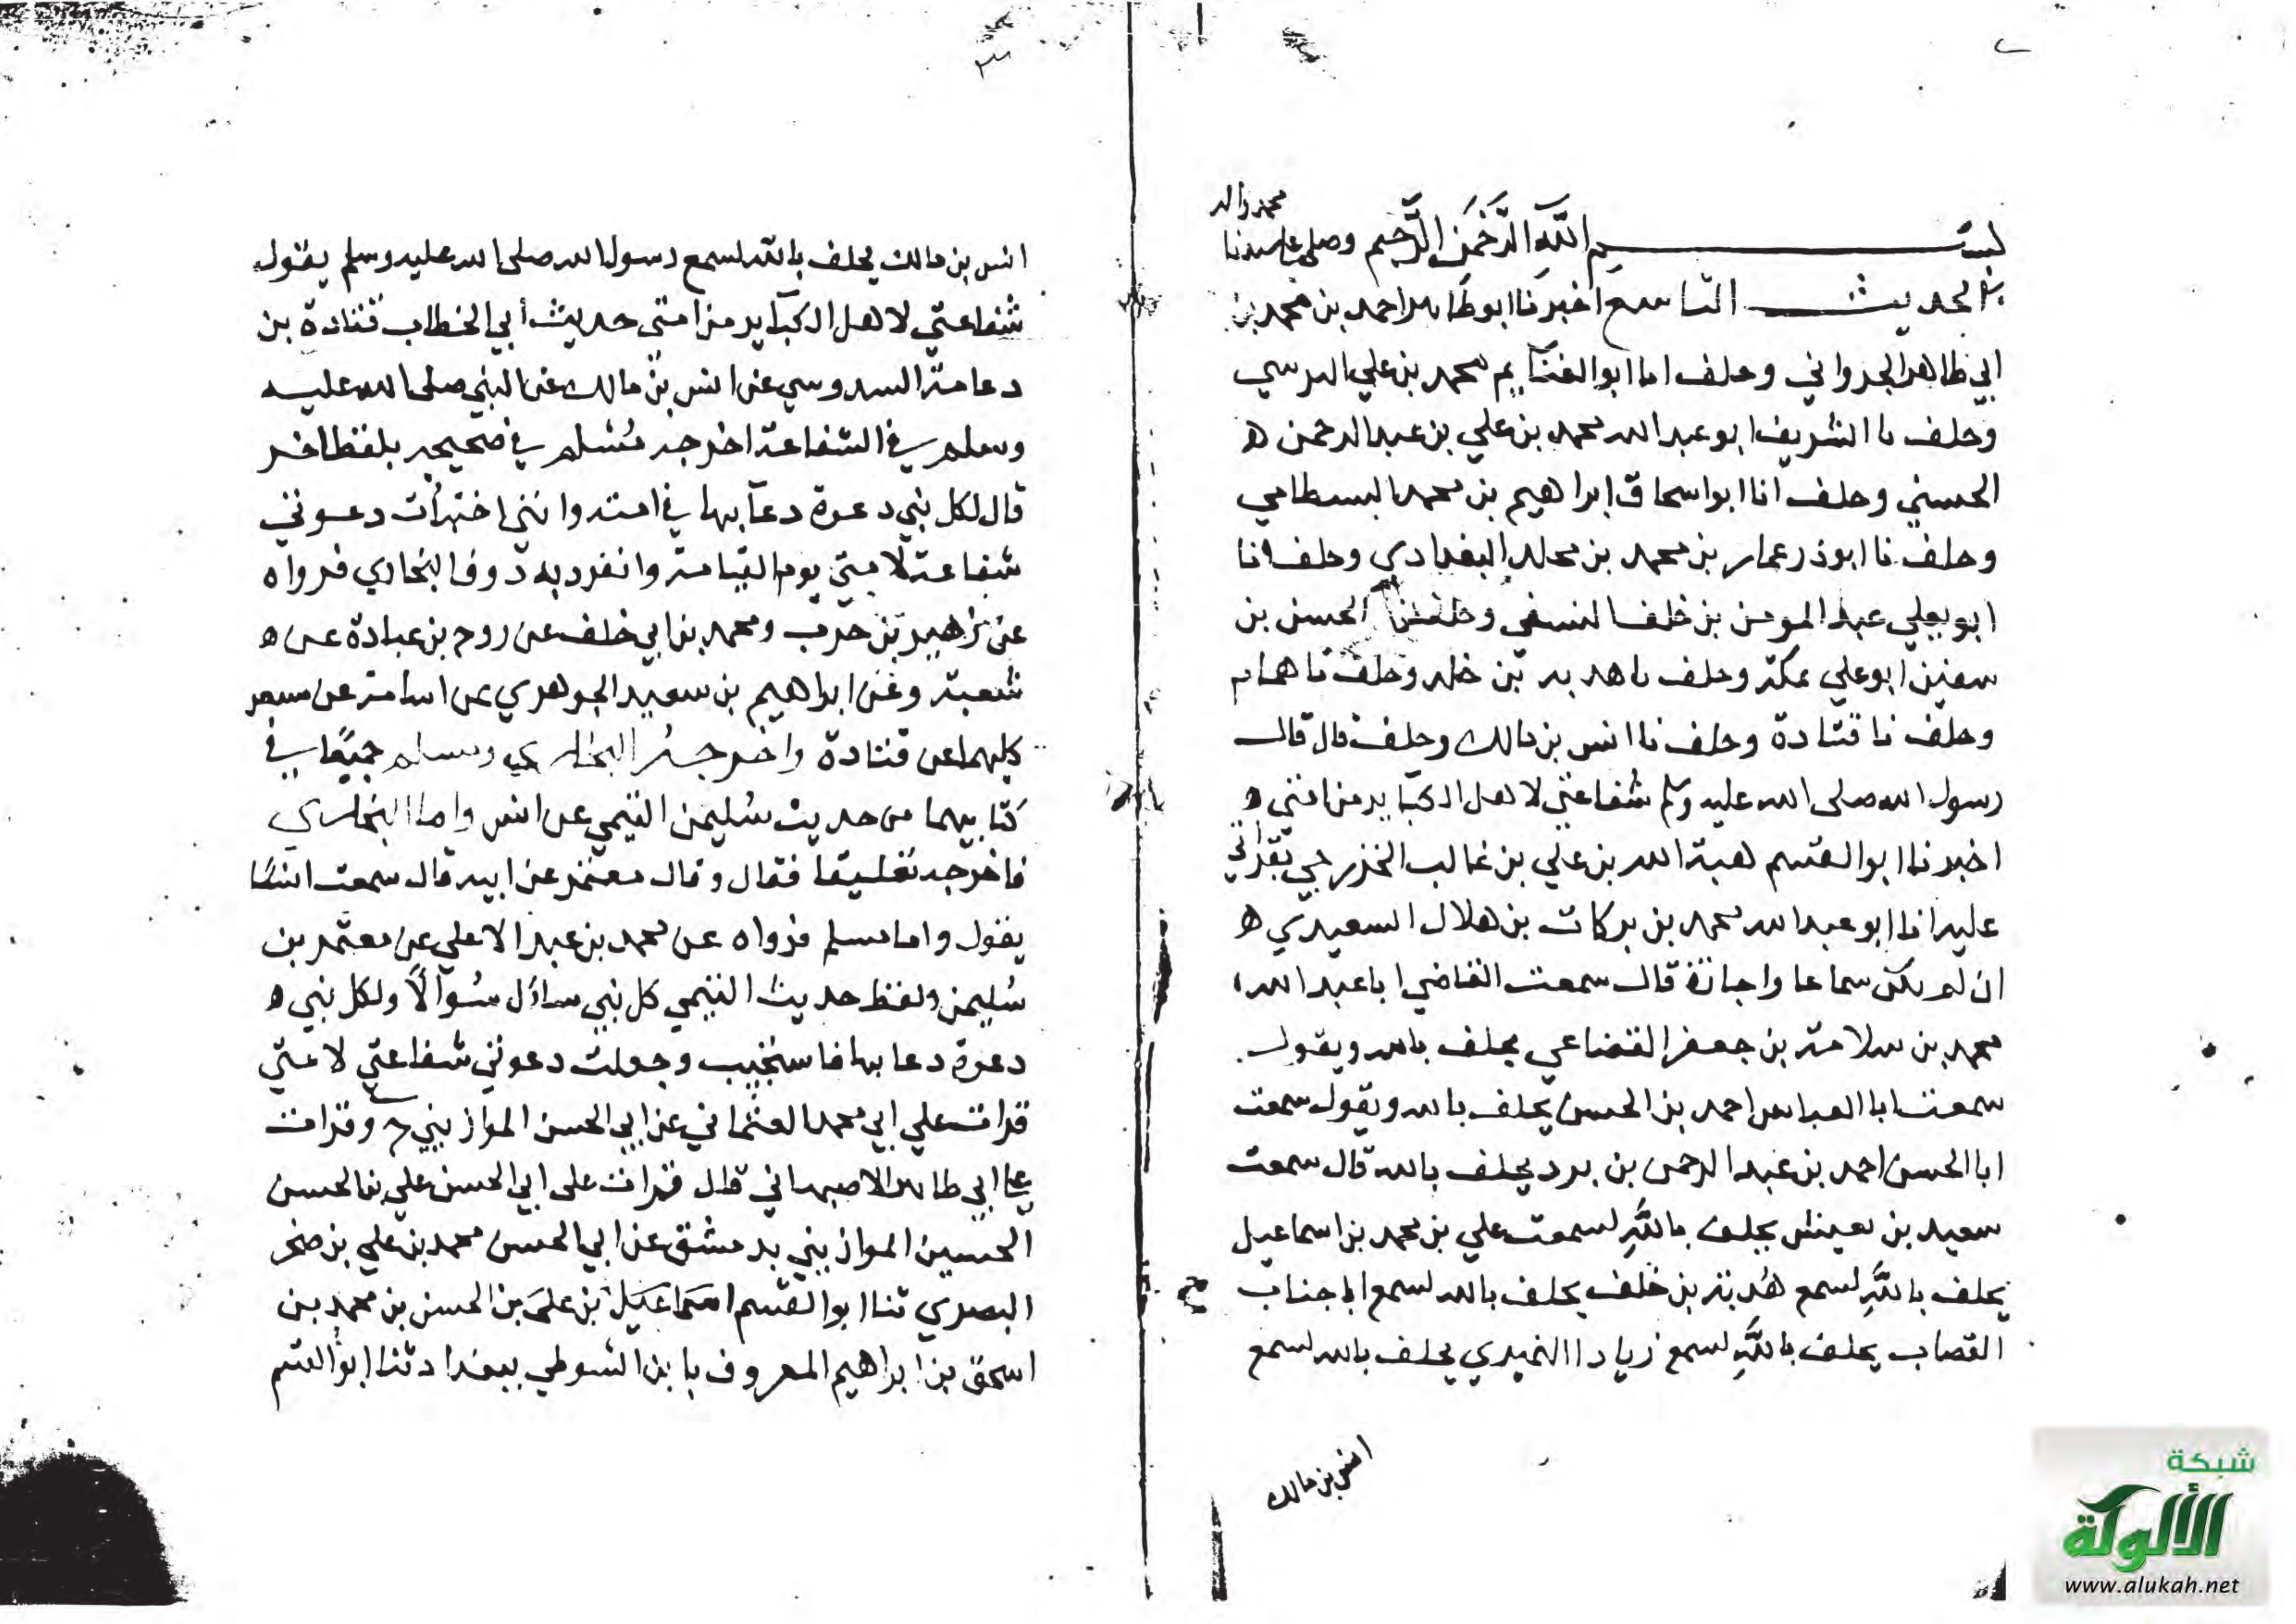 بســـــم الله الرحمن الرحيم وصلى على سيدنا
محمد واله
الحديث التاسع اخبرنا ابو طاهر احمد بن محمد بن
ابي طاهر الجرواني وحلف اما ابو الغنايم محمد بن علي النرسي
وحلف نا الشريف ابو عبد الله محمد بن علي بن عبد الرحمن ه
الحسني وحلف انا ابو اسحاق ابراهيم بن محمد البسطامي
وحلف نا ابوذر عمار بن محمد بن مخلد البغدادي وحلف انا
ابو يعلي عبد المومن بن خلف النسفي وحلف نا الحسن بن
سفين ابو علي بمكة وحلف نا هدبه بن خلد وحلف نا همام
وحلف نا قتادة وحلف نا انس بن مالك وحلف قال قال
رسول الله صلى الله عليه وسلم شفاعتي لاهل الكباير من امتي ه
اخبرنا ابو القسم هبة الله بن علي بن غالب الخزرجي بقراتي
عليه انا ابو عبد الله محمد بن بركات بن هلال السعيدي ه
ان لم يكن سماعا واجازة قال سمعت القاضي ابا عبد الله
محمد بن سلامة بن جعفر القضاعي يحلف بالله ويقول
سمعت ابا العباس احمد بن الحسن يحلف بالله ويقول سمعت
ابا الحسن احمد بن عبد الرحمن بن برد يحلف بالله قال سمعت
سعيد بن يحلف بالله لسمعت علي بن محمد بن اسماعيل
يحلف بالله لسمع هدبة بن خلف يحلف بالله لسمع ابا جناب
القصاب يحلف بالله لسمع زيادا النميري يحلف بالله لسمع
انس بن مالك
٣
انس بن مالك يحلف بالله لسمع رسول الله صلى الله عليه وسلم يقول
شفاعتي لاهل الكباير من امتي حديث أبي الخطاب قتادة بن
دعامة السدوسي عن انس بن مالك عن النبي صلى الله عليه
وسلم في الشفاعة اخرجه مسلم في صحيحه بلفظ اخر
قال لكل نبي دعوة دعا بها في امته وانني اختبأت دعوتي
شفاعة لامتي يوم القيامة وانفرد به دون البخاري فرواه
عن زهير بن حرب ومحمد بن ابي خلف عن روح بن عبادة عن ه
شعبة وعن ابراهيم بن سعيد الجوهري عن اسامة عن مسعر
كليهما عن قتادة واخرجه البخاري ومسلم جميعا في
كتابيهما من حديث سليمن التيمي عن انس واما البخاري
فاخرجه تعليقا فقال وقال معتمر عن ابيه قال سمعت انسًا
يقول واما مسلم فرواه عن محمد بن عبد الاعلي عن معتمر بن
سليمن ولفظ حديث التيمي كل نبي سأل سؤالًا ولكل نبي ه
دعوة دعا بها فاستجيب وجعلت دعوتي شفاعتي لامتي
قرات علي ابي محمد العثماني عن ابي الحسن الموازيني ح وقرات
على ابي طاهر الاصبهاني قال قرات على ابي الحسن علي بن الحسن
الحسين الموازيني بدمشق عن ابي الحسن محمد بن علي بن صخر
البصري ثنا ابو القسم اسماعيل بن علي بن الحسن بن محمد بن
اسحق بن ابراهيم المعروف بابن السوطي ببغداد ثنا ابو القسم
شبكة
الألوكة
www.alukah.net